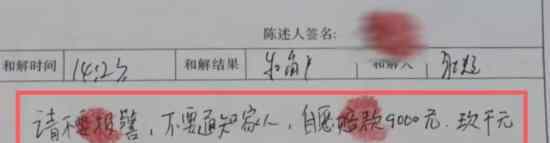 陈述人签名:
和解时间 14:23 和解结果 和解人
请不要报警，不要通知家人，自愿赔款9000元.玖千元